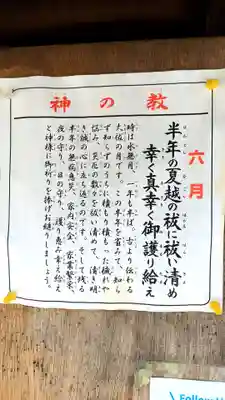 神の教
六月
半年の夏越の祓に祓い清め
幸く真幸く御護り給え
時は水無月、一年も半ば。古より伝わる
大祓の月です。この半年を省みて、知ら
ず知らずのうちに積もり積もった穢れや
悩み、災厄の数々を祓い清めて、清き明
き誠の心に立ち返るのです。そして残る
半年の無病息災、家内安全、家業繁栄、
夜の守り、日の守り、護り恵み幸え給え
と神様に御祈りを捧げお縋りしましょう。
Follow U